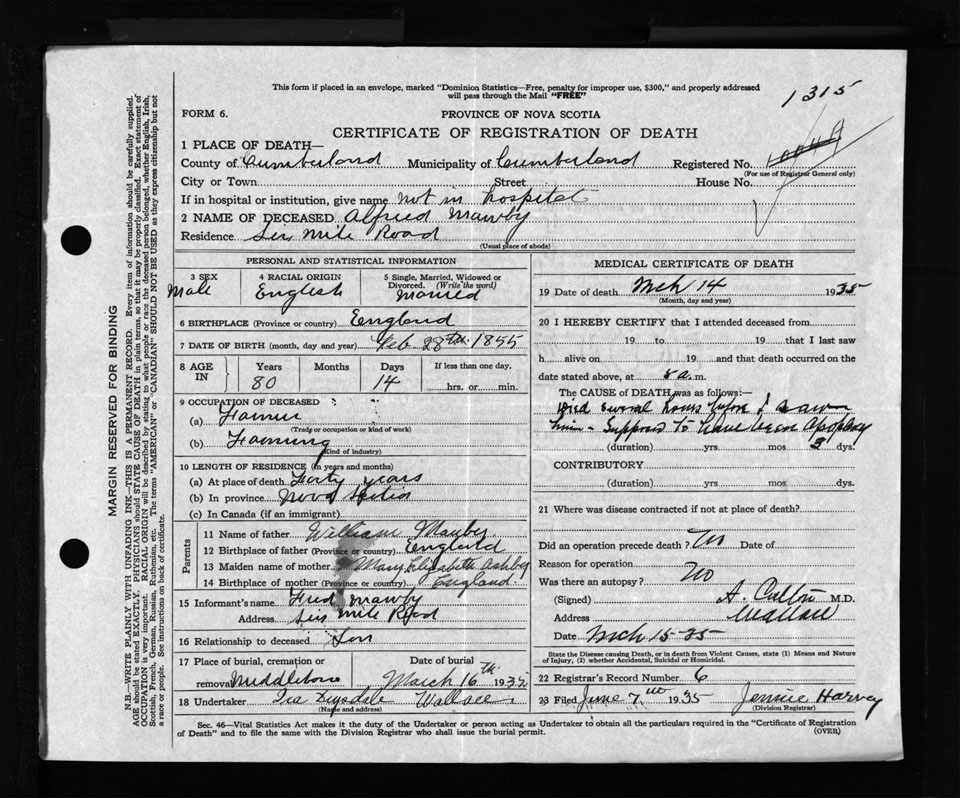 This form if placed in an envelope, marked "Dominion Statistics—Free, penalty for improper use, $300," and properly addressed
will pass through the Mail "FREE"
1315
FORM 6.
PROVINCE OF NOVA SCOTIA
CERTIFICATE OF REGISTRATION OF DEATH
1 PLACE OF DEATH—
County of Cumberland Municipality of Cumberland Registered No.
(For use of Registrar General only)
City or Town Street House No.
If in hospital or institution, give name not in hospital
2 NAME OF DECEASED Alfred Mawby
Residence Six Mile Road
(Usual place of abode)
PERSONAL AND STATISTICAL INFORMATION
3 SEX 4 RACIAL ORIGIN 5 Single, Married, Widowed or
Divorced. (Write the word)
Male English Married
6 BIRTHPLACE (Province or country) England
7 DATE OF BIRTH (month, day and year) Feb. 28th. 1855
8 AGE IN Years Months Days If less than one day,
80 14 hrs. or min.
9 OCCUPATION OF DECEASED
(a) Farmer
(Trade or occupation or kind of work)
(b) Farming
(Kind of industry)
10 LENGTH OF RESIDENCE (in years and months)
(a) At place of death Forty years
(b) In province Nova Scotia
(c) In Canada (if an immigrant)
Parents
11 Name of father William Mawby
12 Birthplace of father (Province or country) England
13 Maiden name of mother Mary Elizabeth Ashby
14 Birthplace of mother (Province or country) England
15 Informant's name Fred Mawby
Address Six Mile Road
16 Relationship to deceased Son
17 Place of burial, cremation or Date of burial
removal Middleboro March 16th 1935
18 Undertaker Wallace
(Name and address)
MEDICAL CERTIFICATE OF DEATH
19 Date of death Mch 14 1935
(Month, day and year)
20 I HEREBY CERTIFY that I attended deceased from
19 to 19 that I last saw
h alive on 19 and that death occurred on
date stated above, at a.m.
The CAUSE of DEATH was as follows:—
Died several hours before I saw
him - Supposed to have been Apoplexy
(duration) yrs mos 2 dys.
CONTRIBUTORY
(duration) yrs mos dys.
21 Where was disease contracted if not at place of death?
Did an operation precede death? No Date of
Reason for operation
Was there an autopsy? No
(Signed) A. M.D.
Address Wallace
Date Mch 15-35
State the Disease causing Death, or in death from Violent Causes, state (1) Means and Nature
of Injury, (2) whether Accidental, Suicidal or Homicidal.
22 Registrar's Record Number 6
23 Filed June 7th 1935 Jennie Harvey
(Division Registrar)
Sec. 46—Vital Statistics Act makes it the duty of the Undertaker or person acting as Undertaker to obtain all the particulars required in the "Certificate of Registration
of Death" and to file the same with the Division Registrar who shall issue the burial permit.
(OVER)
MARGIN RESERVED FOR BINDING
N.B.—WRITE PLAINLY WITH UNFADING INK—THIS IS A PERMANENT RECORD. Every item of information should be carefully supplied.
AGE should be stated EXACTLY. PHYSICIANS should STATE CAUSE OF DEATH in plain terms, so that it may be properly classified. Exact statement of
OCCUPATION is very important. RACIAL ORIGIN will be described by stating to what people or race the deceased person belonged, whether English, Irish,
Scottish, French, German, Russian, Ruthenian, etc. The terms "AMERICAN" or "CANADIAN" SHOULD NOT BE USED as they express citizenship but not
a race or people. See instructions on back of certificate.